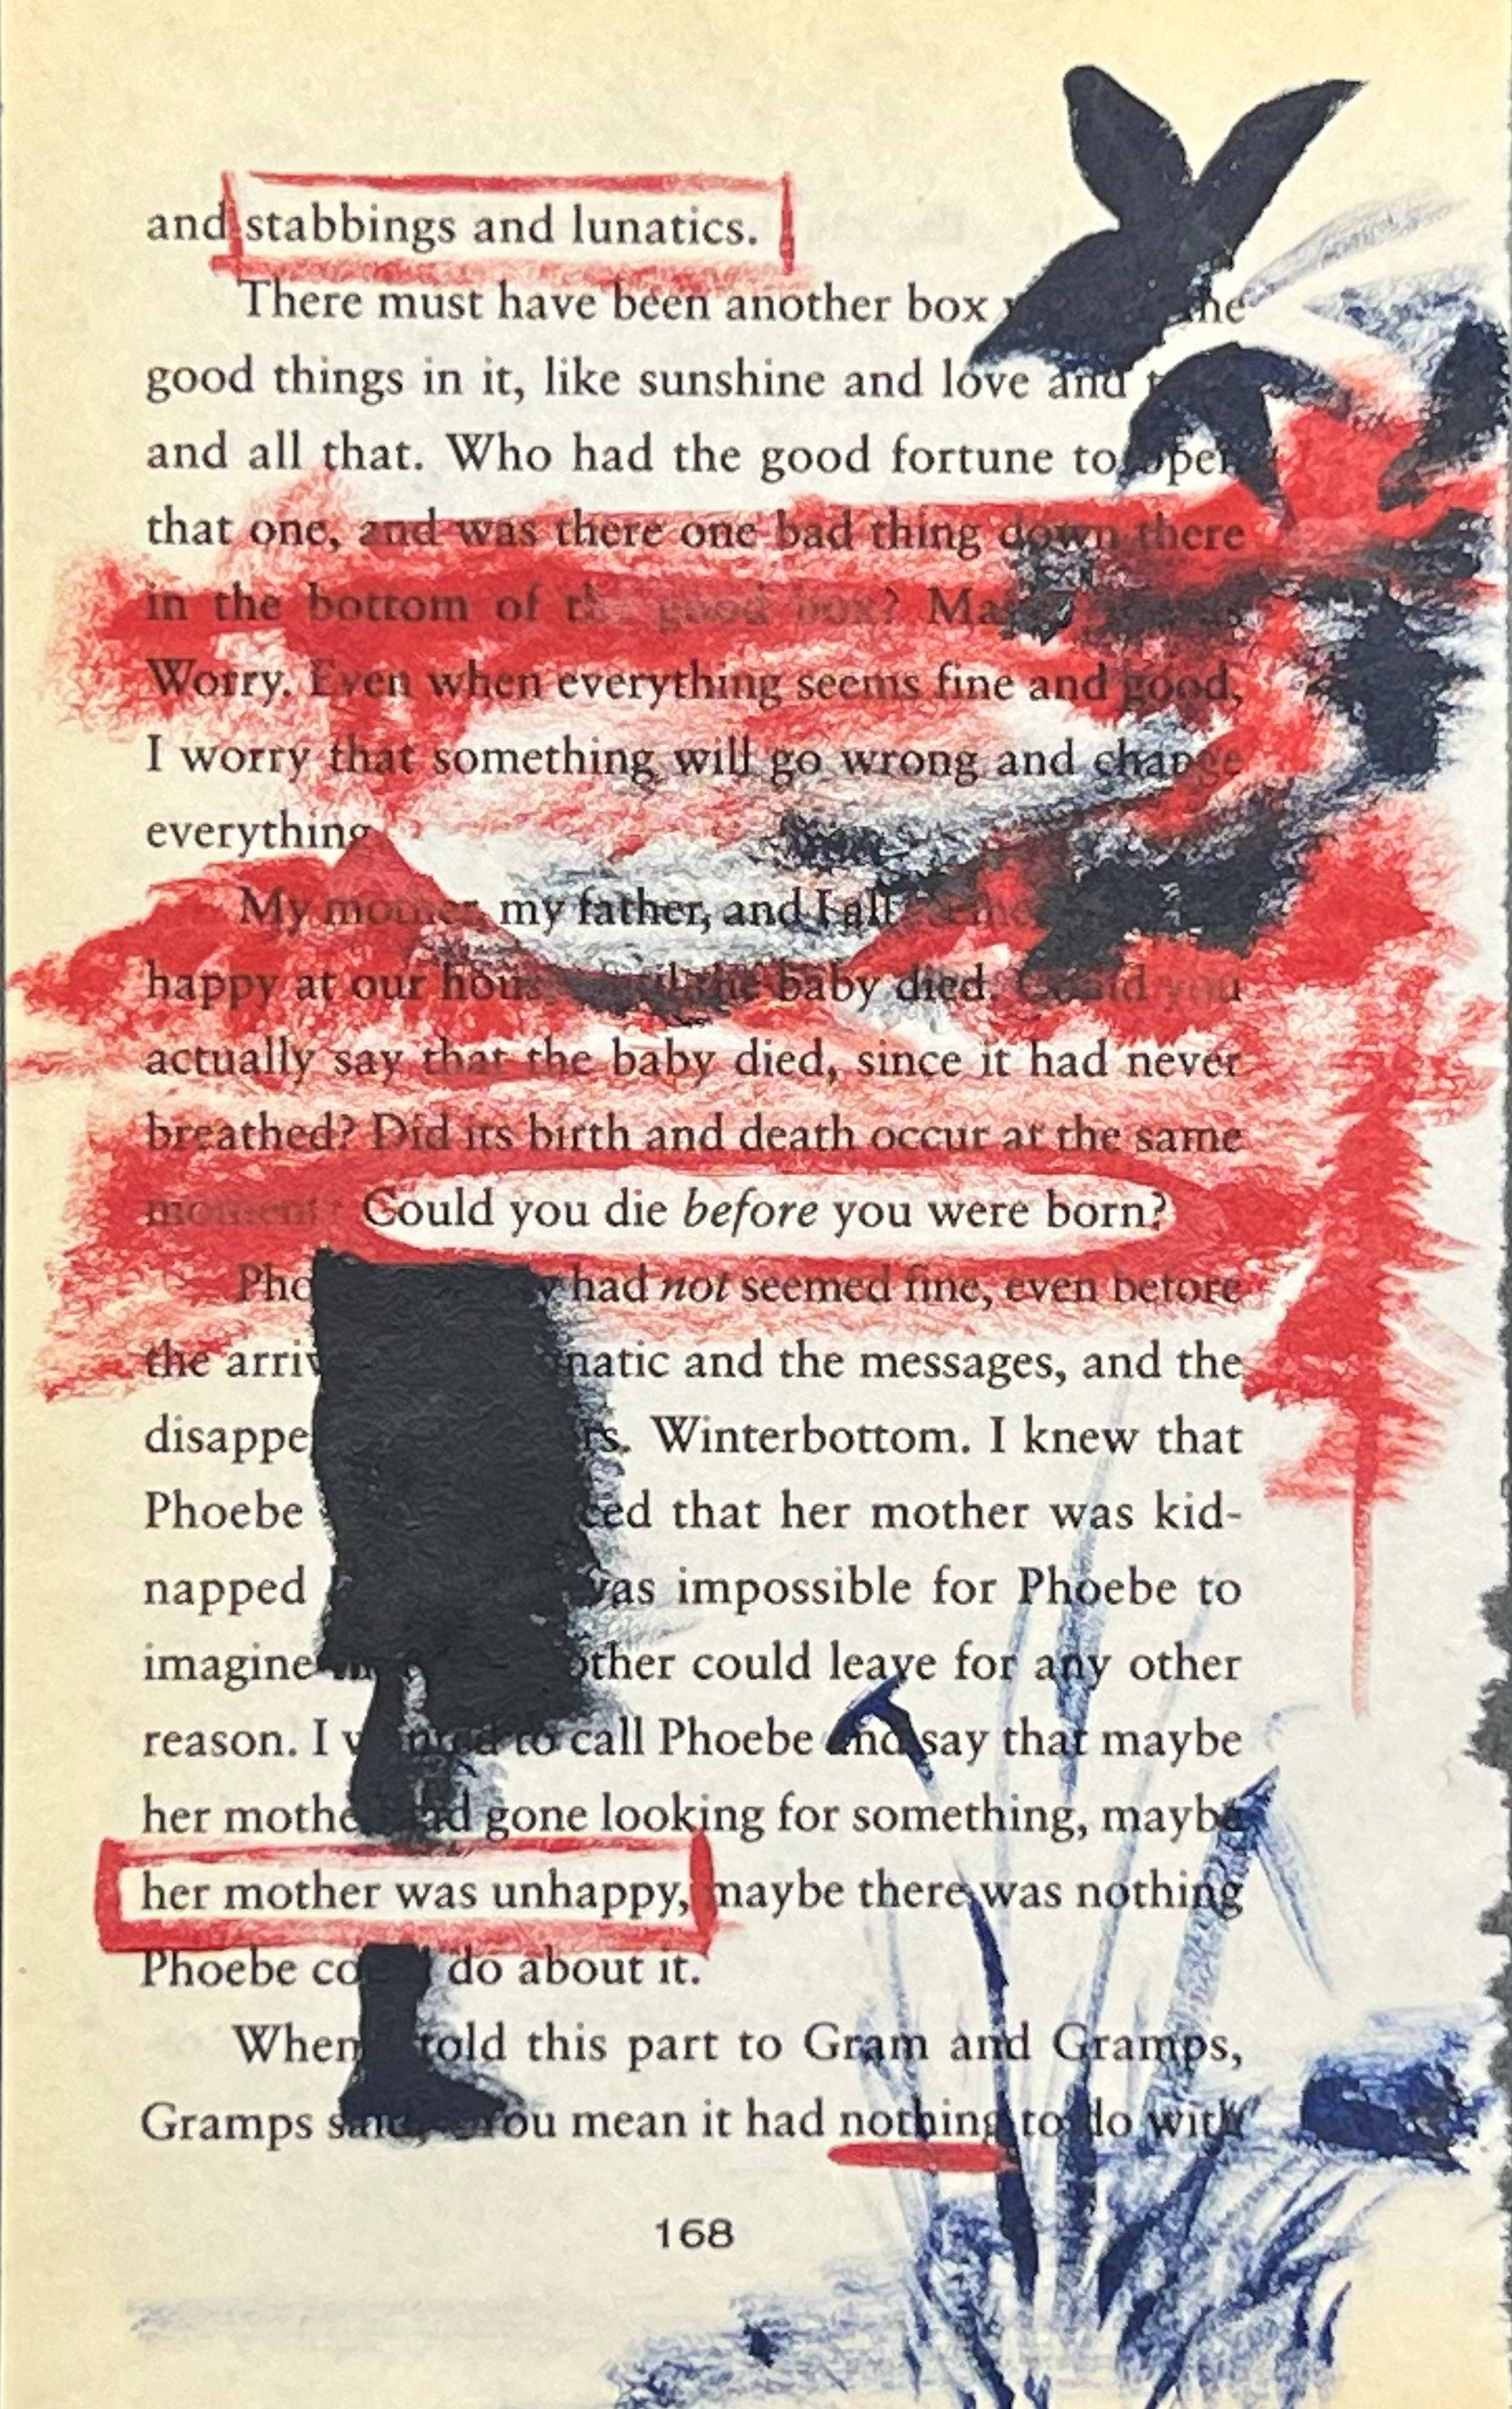 and stabbings and lunatics.
There must have been another box
good things in it, like sunshine and love and
and all that. Who had the good fortune to open
that one, and was there one bad thing down there
in the bottom of the good box?
Worry. Even when everything seems fine and good,
I worry that something will go wrong and change
everything
My mother, my father, and I all
happy at our house until the baby died. Could you
actually say that the baby died, since it had never
breathed? Did its birth and death occur at the same
moment? Could you die before you were born?
had not seemed fine, even before
the and the messages, and the
Winterbottom. I knew that
Phoebe that her mother was kid-
napped was impossible for Phoebe to
imagine could leave for any other
reason. I to call Phoebe and say that maybe
her mother had gone looking for something, maybe
her mother was unhappy, maybe there was nothing
Phoebe do about it.
When told this part to Gram and Gramps,
Gramps said, You mean it had nothing to do with
168